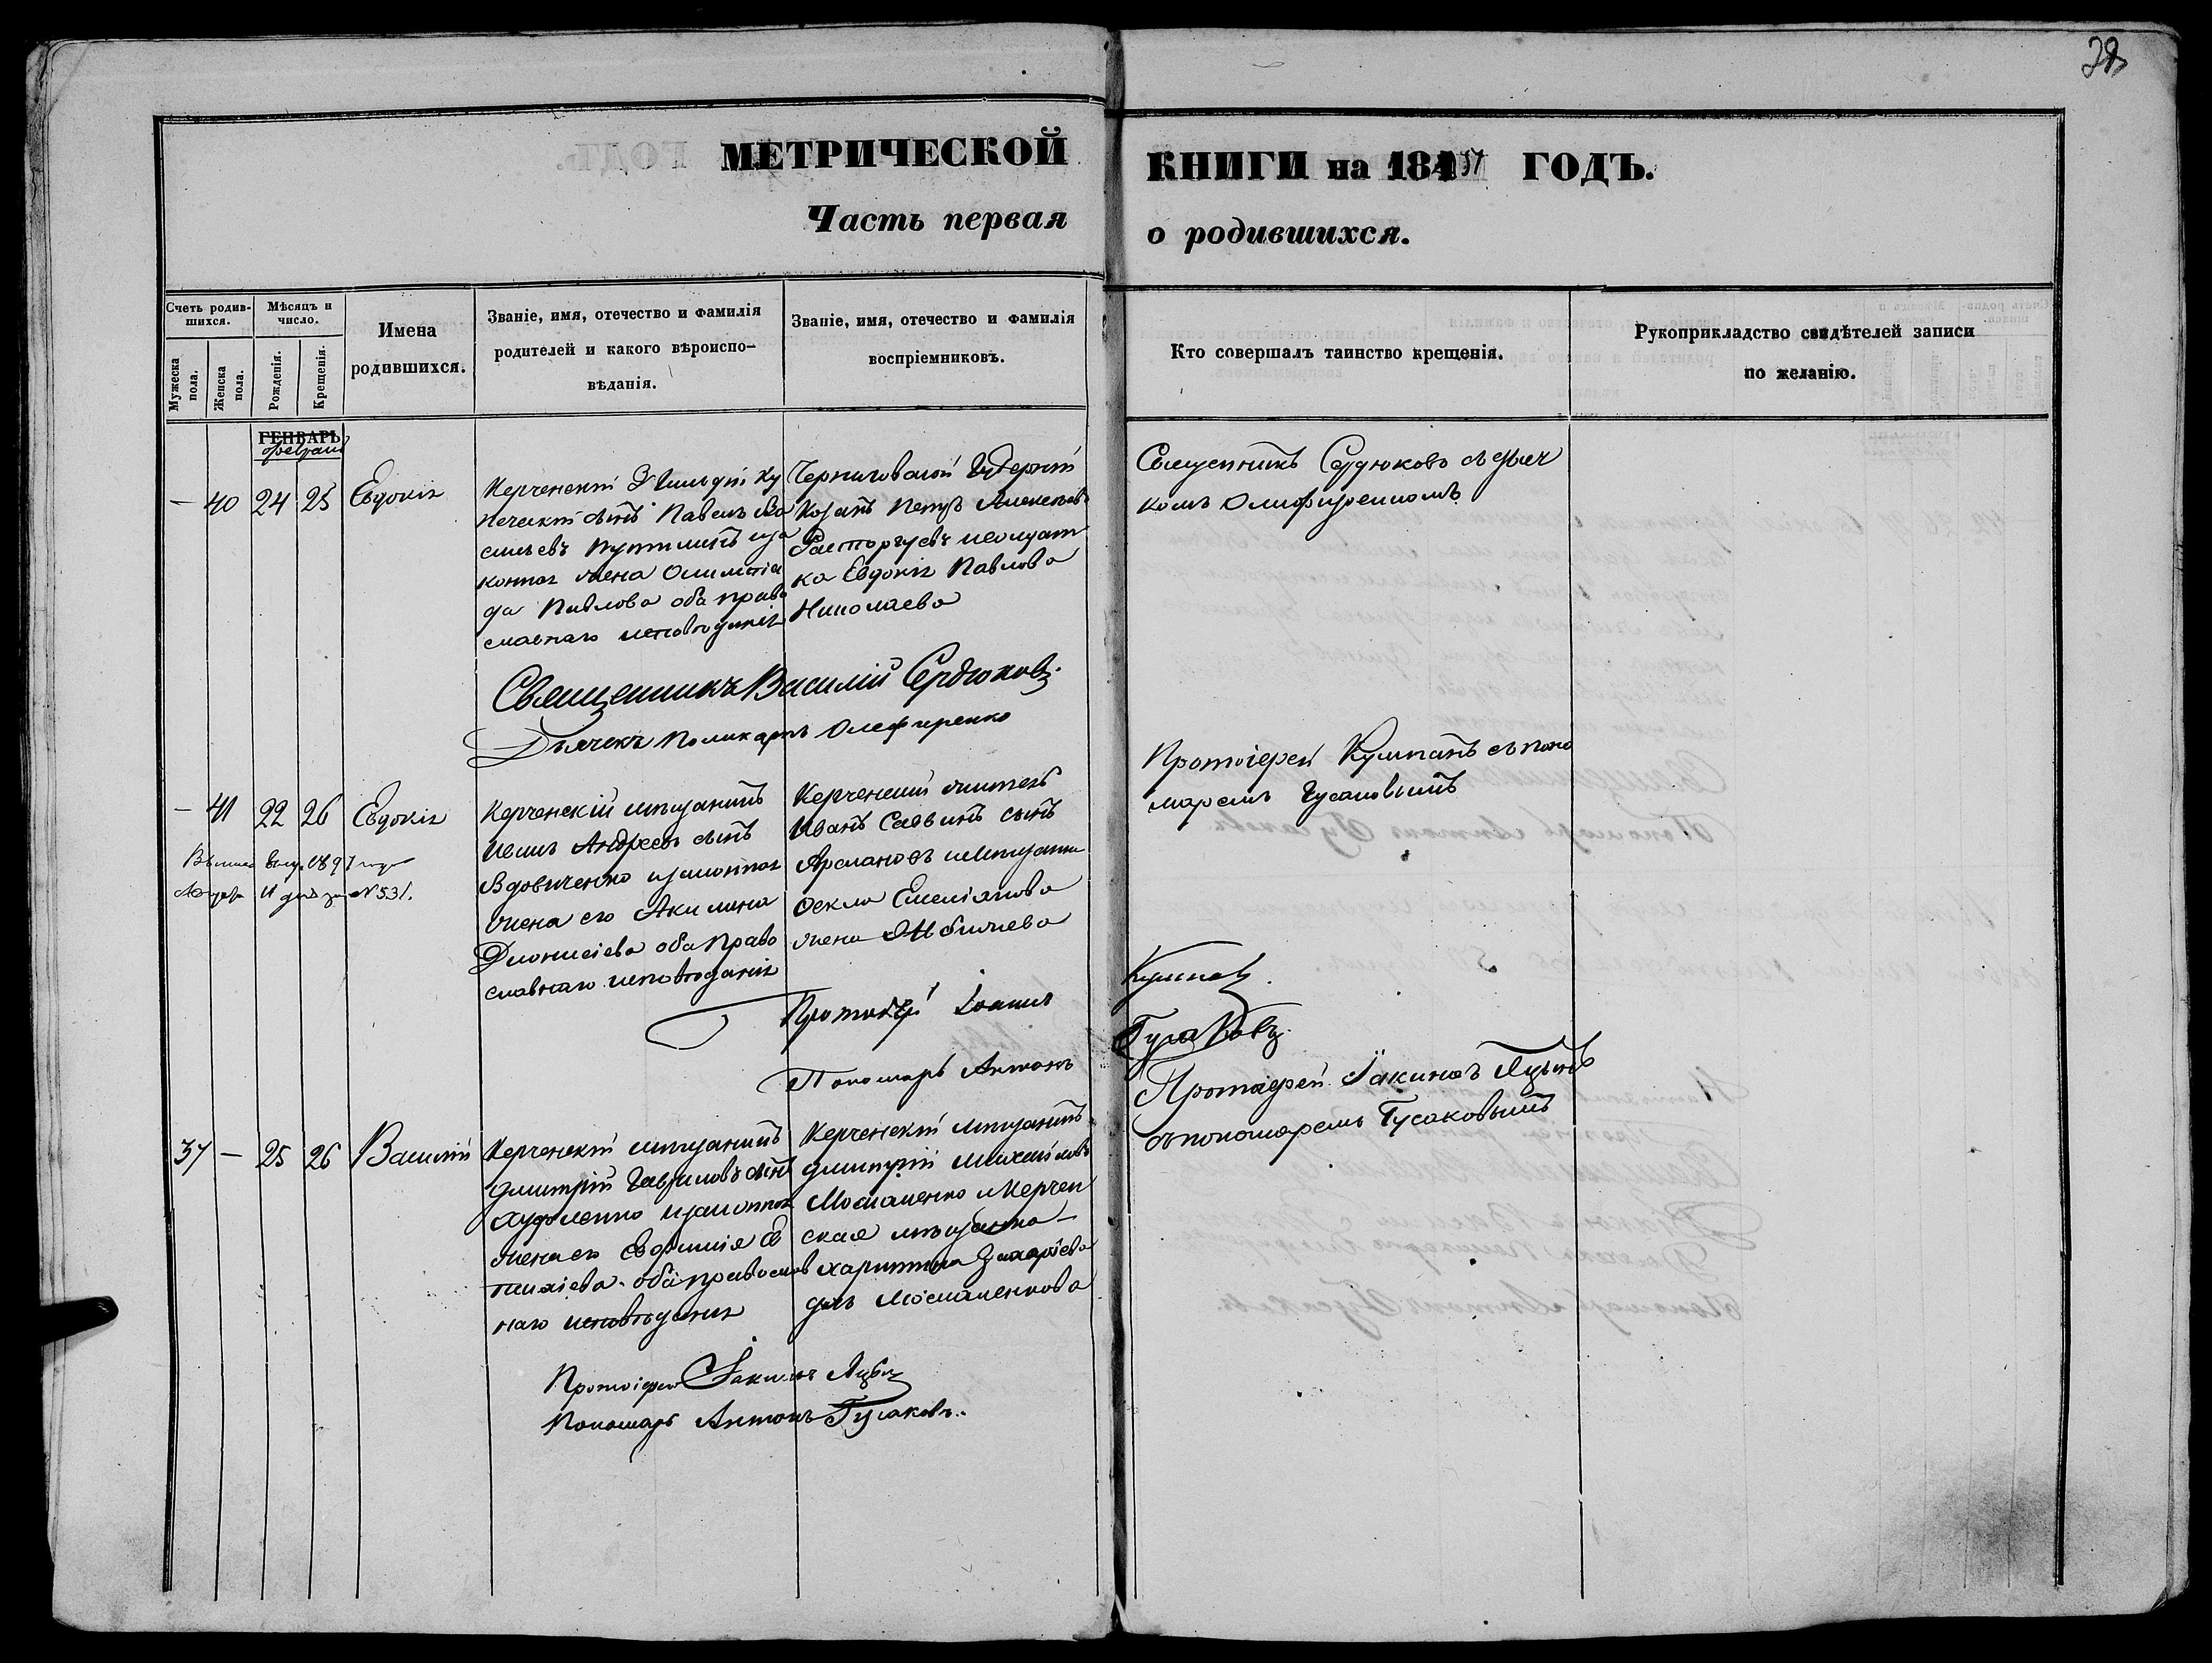 28
МЕТРИЧЕСКОЙ
КНИГИ на 1851 ГОДЪ.
Часть первая
о родившихся.
Счетъ родив-
шихся.
Мужеска
пола.
Женска
пола.
Мѣсяцъ и
число.
Рожденія.
Крещенія.
Имена
родившихся.
Званіе, имя, отечество и фамилія
родителей и какого вѣроиспо-
вѣданія.
Званіе, имя, отечество и фамилія
воспріемниковъ.
Кто совершалъ таинство крещенія.
Рукоприкладство свидѣтелей записи
по желанію.
ГЕНВАРЬ
февраль
— 40 24 25 Евдокія
Керченскій 3 Гильдіи ку
печескій сынъ Павелъ Ва
сильевъ
конная жена Олимпіа
да Павлова оба право
славнаго исповѣданія
Черниговской Губерніи
Козакъ Петръ Алексѣевъ
Расторгуевъ и солдат
ка Евдокія Павлова
Николаева
Священникъ Сердюковъ съ дьяч
комъ Олифиренкомъ
Священникъ Василій Сердюковъ.
Дьячекъ Поликарпъ Олефиренко
— 41 22 26 Евдокія
Керченскій мѣщанинъ
Андреевъ сынъ
Вдовиченко и законная
жена его Акилина
Діонисіева оба право
славнаго исповѣданія
Керченскій житель
Иванъ Саввинъ сынъ
Арслановъ и мѣщанка
Фекла Емеліянова
жена
Протоіерей Кумпанъ съ поно
маремъ Гусаковымъ
1897 года
№ 531.
Протоіерей Іоаннъ
Кумпанъ.
Пономарь Антонъ
Гусаковъ.
37 — 25 26 Василій
Керченскій мѣщанинъ
Димитрій Гавриловъ сынъ
и законная
жена его Евфимія Ев
тихіева оба православ
наго исповѣданія
Керченскій мѣщанинъ
Димитрій Михайловъ
Москаленко и Керчен
ская мѣщанка
Харитина Захаріева
дочь Москаленкова
Протоіерей Іакинфъ Яцынъ
съ пономаремъ Гусаковымъ
Протоіерей Іакинфъ
Пономарь Антонъ Гусаковъ.